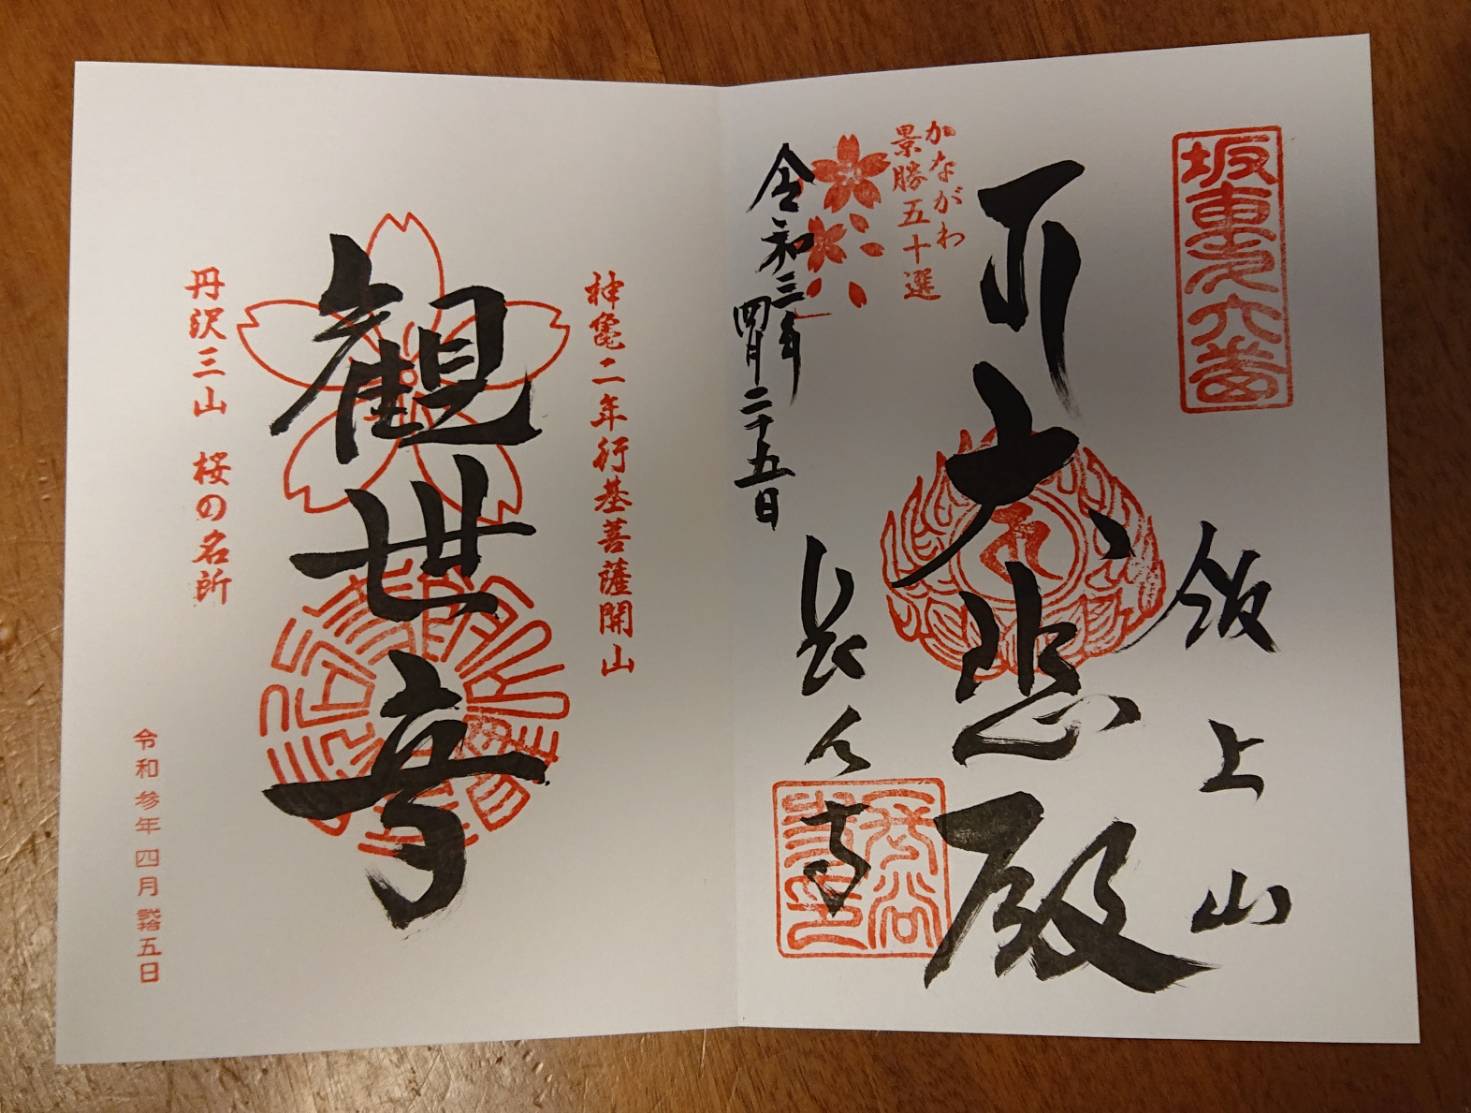 坂東第六番
飯上山
大悲殿
かながわ
景勝五十選
令和三年
四月二十五日
長谷寺
神亀二年行基菩薩開山
観世音
丹沢三山 桜の名所
令和参年四月弐拾五日